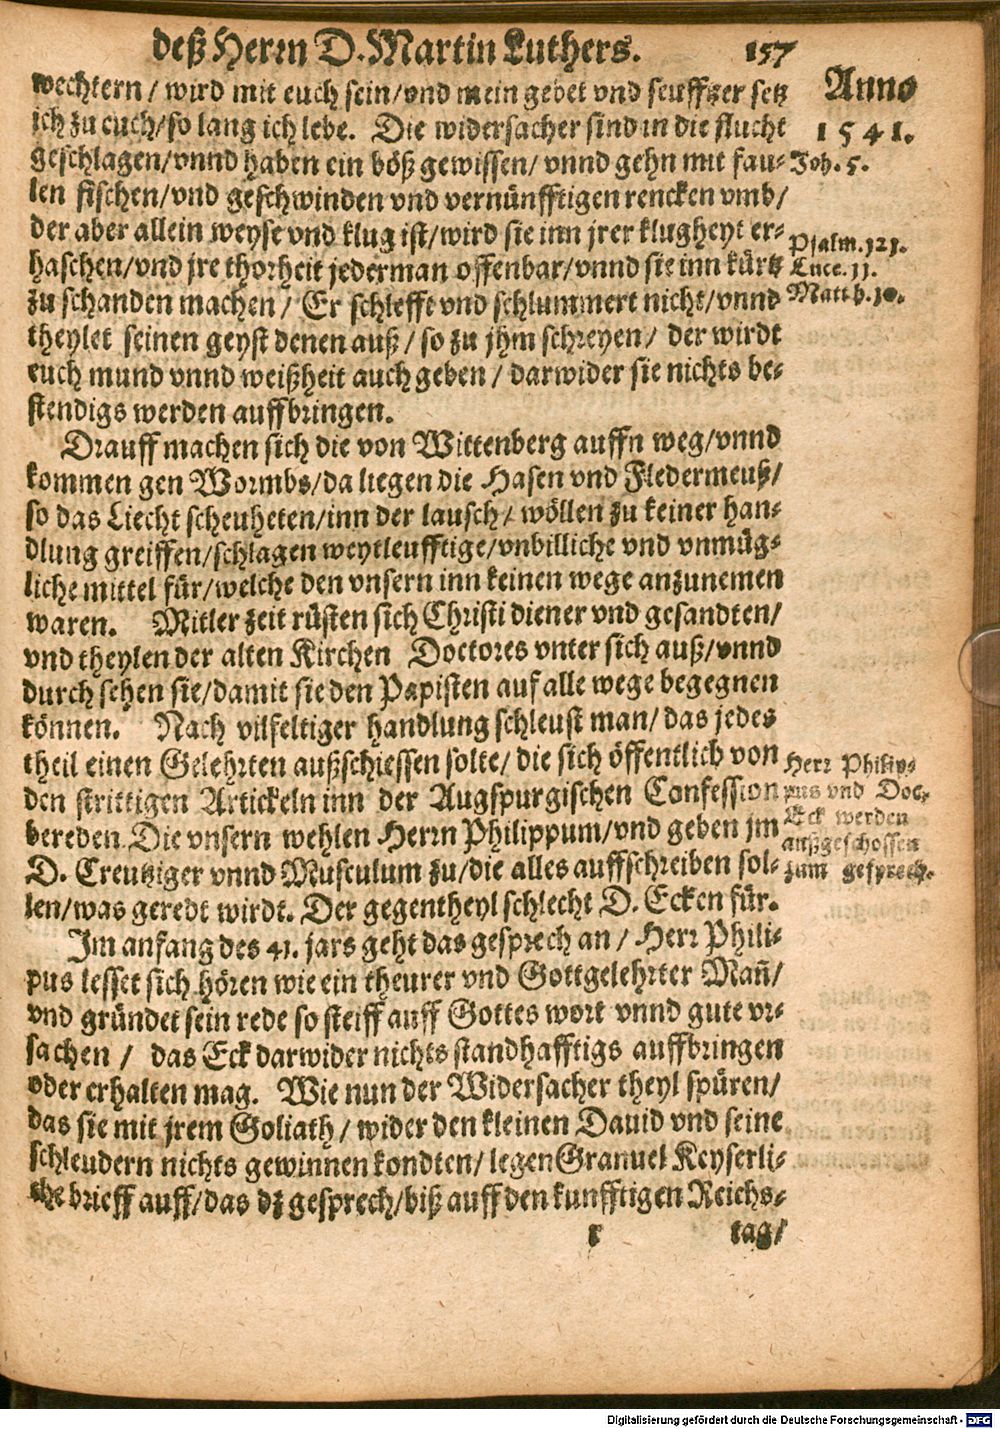 deß Herrn D. Martin Luthers. 157
wechtern / wird mit euch sein/vnd mein gebet vnd seufftzer setz
ich zu euch/so lang ich lebe. Die widersacher sind in die flucht
geschlagen/vnnd haben ein böß gewissen/ vnnd gehn mit fau-
len fischen/vnd geschwinden vnd vernünfftigen rencken vmb/
der aber allein weyse vnd klug ist/wird sie inn jrer klugheyt er-
haschen/vnd jre thorheit jederman offenbar/vnnd sie inn kürtz
zu schanden machen / Er schlefft vnd schlummert nicht/vnnd
theylet seinen geyst denen auß / so zu jhm schreyen / der wirdt
euch mund vnnd weißheit auch geben / darwider sie nichts be-
stendigs werden auffbringen.
Drauff machen sich die von Wittenberg auffn weg/vnnd
kommen gen Wormbs/da liegen die Hasen vnd Fledermeuß/
so das Liecht scheuheten/inn der lausch / wöllen zu keiner han-
dlung greiffen/schlagen weytleufftige/vnbilliche vnd vnmüg-
liche mittel für/welche den vnsern inn keinen wege anzunemen
waren. Mitler zeit rüsten sich Christi diener vnd gesandten/
vnd theylen der alten Kirchen Doctores vnter sich auß/vnnd
durch sehen sie/damit sie den Papisten auf alle wege begegnen
können. Nach vilfeltiger handlung schleust man/ das jedes
theil einen Gelehrten außschiessen solte/ die sich öffentlich von
den strittigen Artickeln inn der Augspurgischen Confession
bereden. Die vnsern wehlen Herrn Philippum/vnd geben jm
D. Creutziger vnnd Musculum zu/die alles auffschreiben sol-
len/was geredt wirdt. Der gegentheyl schlecht D. Ecken für.
Im anfang des 41. jars geht das gesprech an / Herr Phili-
pus lesset sich hören wie ein theurer vnd Gottgelehrter Mañ/
vnd gründet sein rede so steiff auff Gottes wort vnnd gute vr-
sachen / das Eck darwider nichts standhafftigs auffbringen
oder erhalten mag. Wie nun der Widersacher theyl spüren/
das sie mit jrem Goliath / wider den kleinen Dauid vnd seine
schleudern nichts gewinnen kondten/ legen Granuel Keyserli-
che brieff auff/das dz gesprech/biß auff den kunfftigen Reichs-
r tag/
Anno
1541.
Joh. 5.
Psalm. 121.
Luce. 11.
Matth. 10.
Herr Philip-
pus vnd Doc.
Eck werden
außgeschossen
zum gesprech.
Digitalisierung gefördert durch die Deutsche Forschungsgemeinschaft - DFG